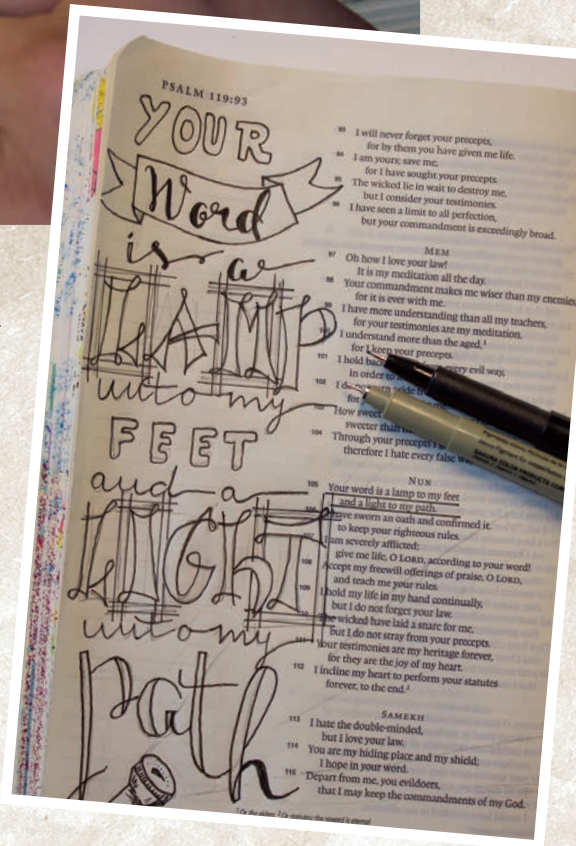 PSALM 119:93
YOUR
Word
is a
LAMP
unto my
FEET
and a
LIGHT
unto my
path
93 I will never forget your precepts,
for by them you have given me life.
94 I am yours; save me,
for I have sought your precepts.
95 The wicked lie in wait to destroy me,
but I consider your testimonies.
96 I have seen a limit to all perfection,
but your commandment is exceedingly broad.
MEM
97 Oh how I love your law!
It is my meditation all the day.
98 Your commandment makes me wiser than my enemies
for it is ever with me.
99 I have more understanding than all my teachers,
for your testimonies are my meditation.
I understand more than the aged,¹
for I keep your precepts.
101 I hold back every evil way,
in order to
102 I do not turn
for
103 How sweet
sweeter than
104 Through your precepts I
therefore I hate every false
SAKURA COLOR PRODUCTS
NUN
105 Your word is a lamp to my feet
and a light to my path.
have sworn an oath and confirmed it,
to keep your righteous rules.
I am severely afflicted;
give me life, O LORD, according to your word!
108 Accept my freewill offerings of praise, O LORD,
and teach me your rules.
109 I hold my life in my hand continually,
but I do not forget your law.
The wicked have laid a snare for me,
but I do not stray from your precepts.
111 Your testimonies are my heritage forever,
for they are the joy of my heart.
112 I incline my heart to perform your statutes
forever, to the end.²
SAMEKH
113 I hate the double-minded,
but I love your law.
114 You are my hiding place and my shield;
I hope in your word.
115 Depart from me, you evildoers,
that I may keep the commandments of my God.
¹ Or the elders ² Or statutes; the reward is eternal